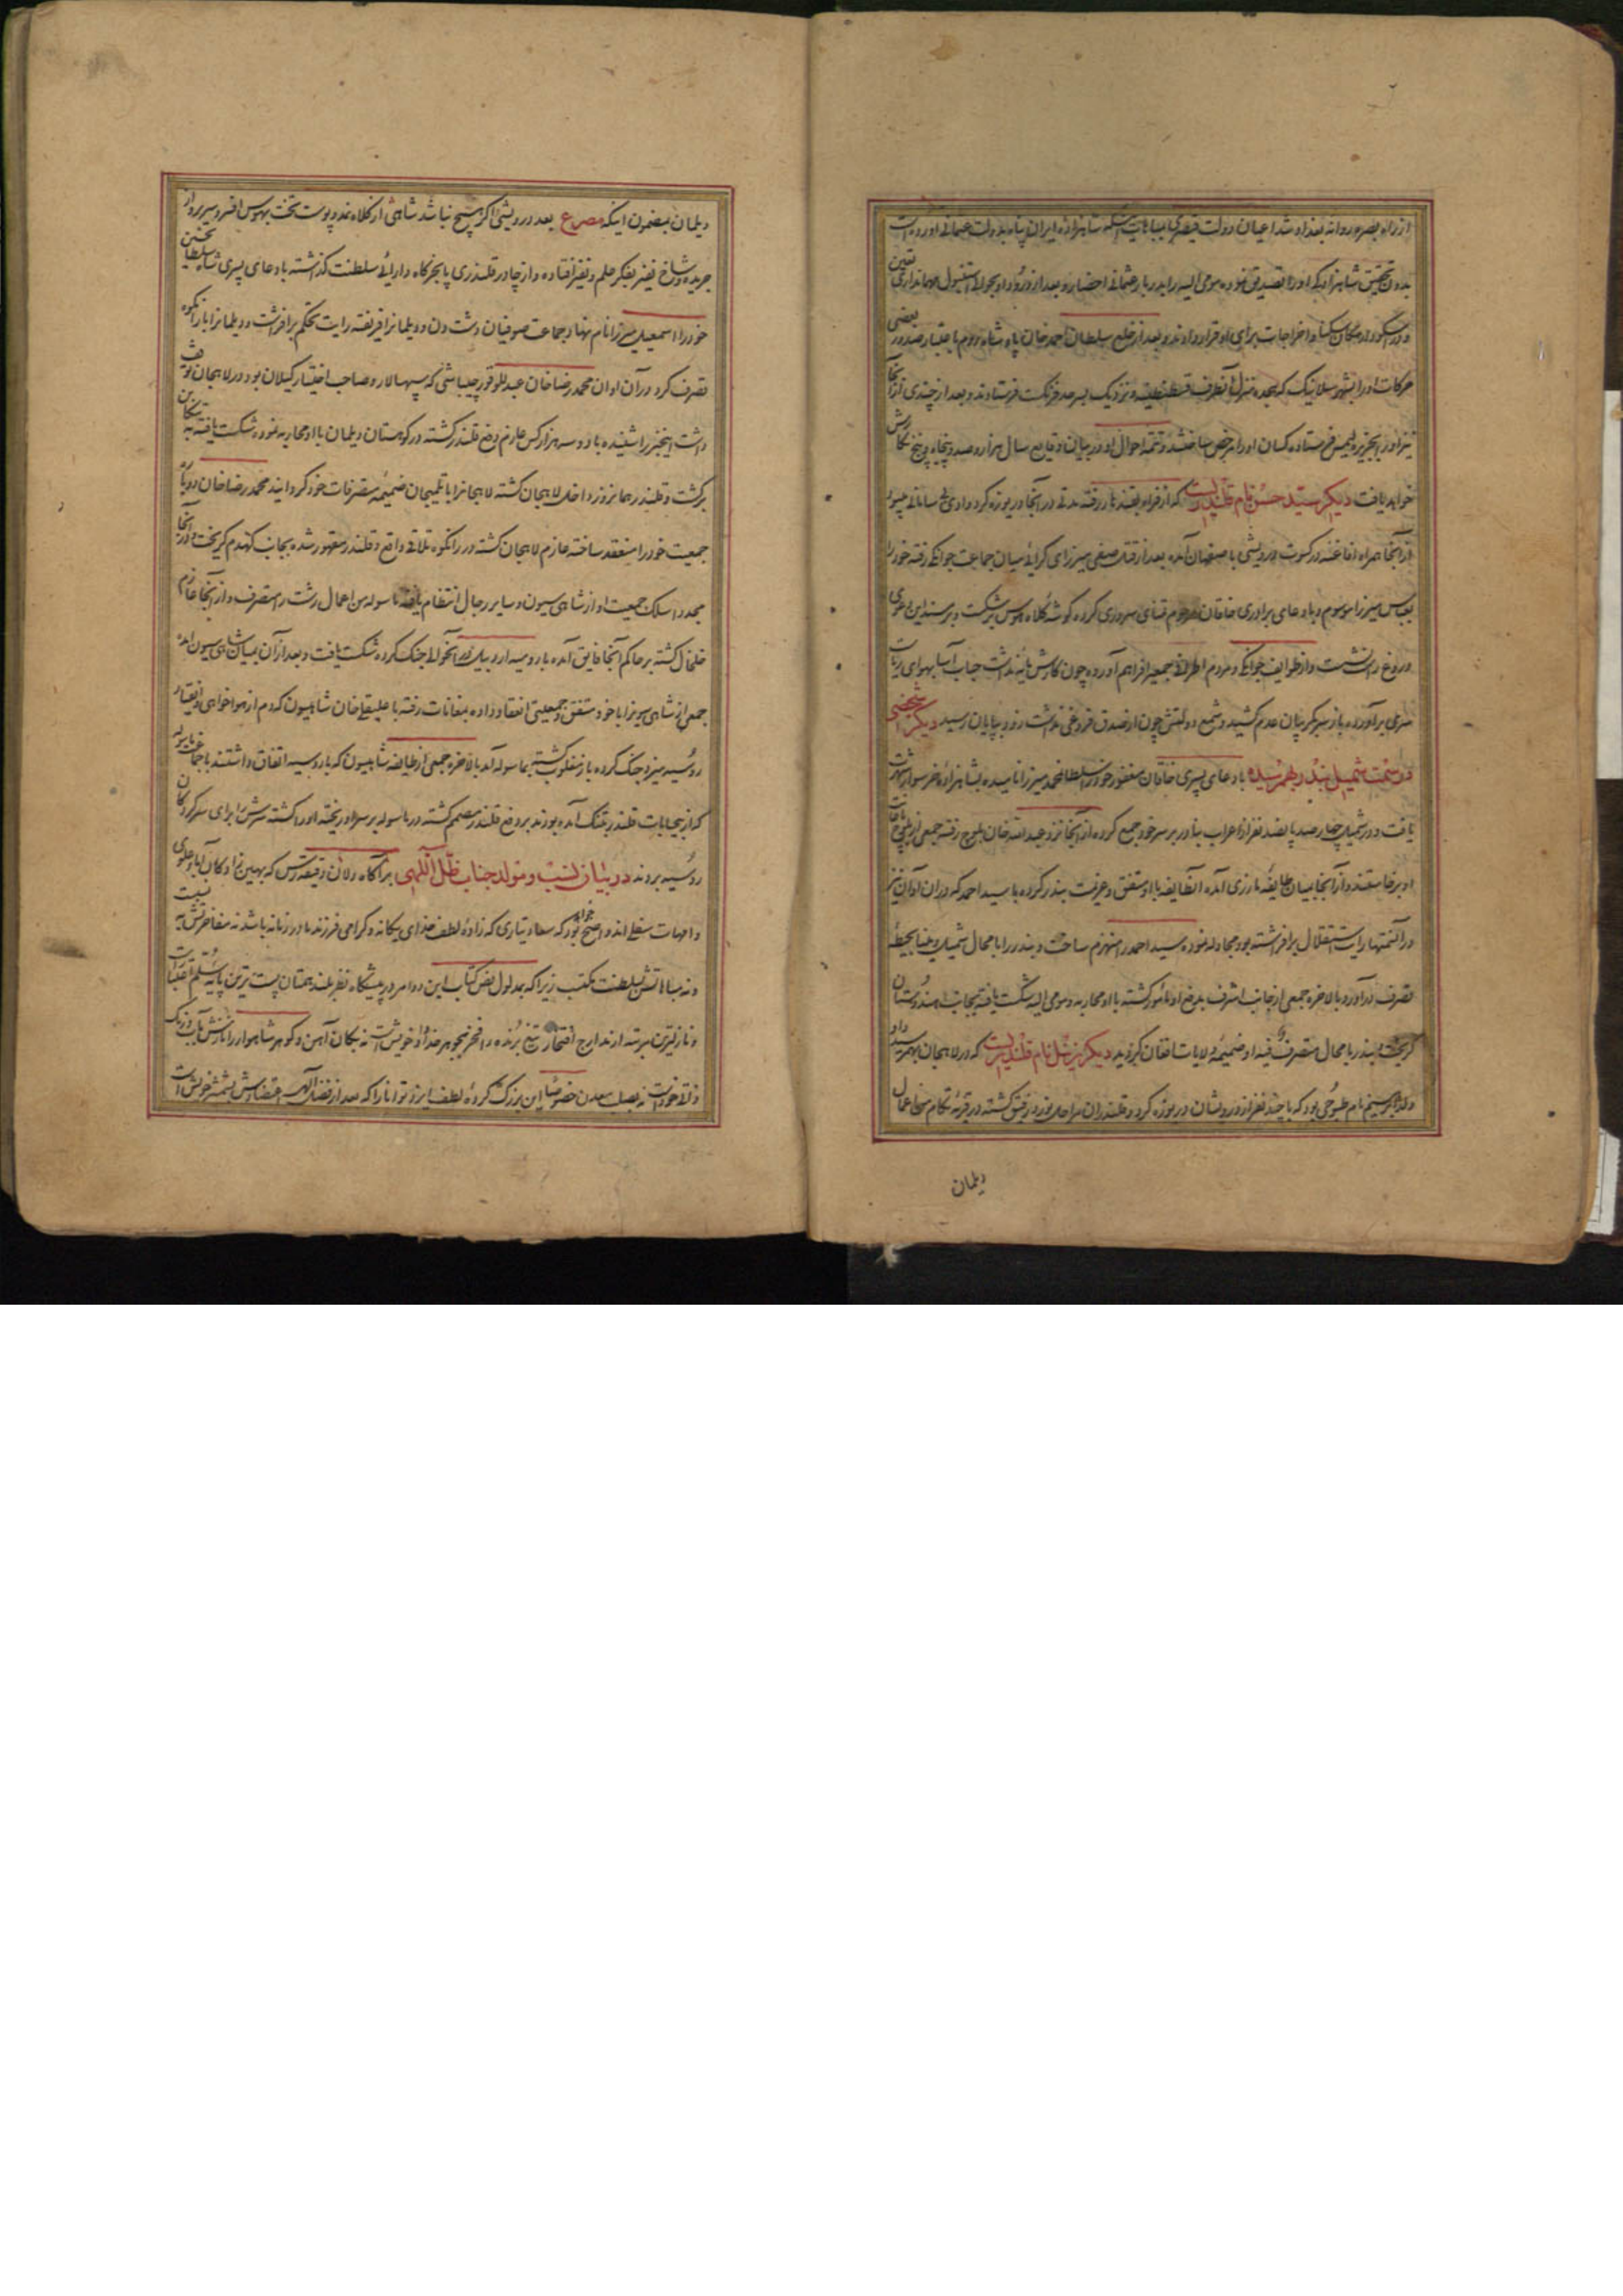 از راه بصره روانه بغداد شد اعیان دولت قیصری بمباهات اینکه شاهزاده ایران پناه بدولت عثمانی آورده است
بدون تحقیق شاهزادگی او را تصدیق نموده مومی الیه را بدربار عثمانی احضار و بعد از ورود او بحوالی استنبول مهمانداری تعیین
و در اسکودار مکان سکنا و اخراجات برای او قرار دادند و بعد از خلع سلطان احمد خان پادشاه روم باعتبار صدور بعضی
حرکات او را بشهر سلانیک که هجده منزل آنطرف قسطنطنیه و نزدیک بسرحد فرنگست فرستادند و بعد از چندی از آنجا
نیز او را بجزیره لیمس فرستاده کسان او را مرخص ساختند و تتمه احوال او در بیان وقایع سال هزار و صد و پنجاه و پنج نگارش
خواهد یافت دیگر سید حسن نام قلندریست که از فراه بقندهار رفته مدتی در آنجا دریوزه کرد وادی بی سامانی میبود
از آنجا همراه افاغنه در کسوت درویشی باصفهان آمده بعد از قتل صفی میرزای کرائی میان جماعت جوانکی رفته خود را
بعباس میرزا موسوم و بادعای برادری خاقان مرحوم تمنای سروری کرده گوشه کلاه هوس بر شکست و بر مسند این دعوی
دروغ راست نشست و از طوایف جوانکی و مردم اطراف جمعی فراهم آورده چون کارش مایه نداشت حباب آسا بهوای ریاست
سری برآورده باز سر بگریبان عدم کشید و شمع دولتش چون از صدق فروغی نداشت زود بپایان رسید دیگر شخصی
در سمت شمیل بندر بهمرسیده بادعای پسری خاقان مغفور خود را سلطان محمد میرزا نامیده بشاهزاده خر سوار شهرت
یافت و در شمیل چهارصد پانصد نفر از اعراب بنادر بر سر خود جمع کرده از آنجا نزد عبدالله خان بلوچ رفته جمعی از بلوچ باتفاق
او برخاستند و از آنجا بمیان طایفه بارزی آمده آنطایفه با او متفق و عزیمت بندر کرده با سید احمد که در آن اوان نیز
در آن سمتها رایت استقلال برافراشته بود مجادله نموده سید احمد را منهزم ساخت و بندر را با محال شمیل و مینا بحیطه
تصرف درآورد بالاخره جمعی از جانب اشرف بدفع او مامور گشته با او محاربه و مومی الیه شکست یافته بجانب هندوستان
گریخت و بندر با محال متصرف فیه او ضمیمه ولایات افغان گردید دیگر زینل نام قلندریست که در لاهیجان بهمرسیده
ولد ابراهیم نام طسوجی بود که با چند نفر از درویشان دریوزه کرد و قلندران مراحل نورد رفیق گشته در قریه تکام من اعمال
دیلمان
دیلمان بمضمون اینکه مصرع بعد درویشی اگر هیچ نباشد شاهی از کلاه نمد و پوست تخت بهوس افسر و سریر و از
جریده و شاخ نفیر بفکر علم و نفیر افتاده و از چادر قلندری پا بخرگاه دارائی سلطنت گذاشته بادعای پسری شاه سلطان حسین
خود را اسمعیل میرزا نام نهاد و جماعت صوفیان دشت دن و دیلمانرا فریفته رایت تحکم برافراشت و دیلمانرا با رانکوه
تصرف کرد در آن اوان محمد رضا خان عبدللو قورچیباشی که سپهسالار و صاحب اختیار گیلان بود در لاهیجان توقف
داشت اینخبر را شنیده با دو سه هزار کس عازم دفع قلندر گشته در کوهستان دیلمان با او محاربه نموده شکست یافته به تنکابن
برگشت و قلندر همانروز داخل لاهیجان گشته لاهیجانرا با تلیجان ضمیمه متصرفات خود گردانید محمد رضا خان دوباره
جمعیت خود را منعقد ساخته عازم لاهیجان گشته در رانکوه تلاقی واقع و قلندر مقهور شده بجانب کهدم گریخت و در آنجا
مجددا سلک جمعیت او از شاهی سیون و سایر رجال انتظام یافته ماسوله من اعمال رشت را متصرف و از آنجا عازم
خلخال گشته بر حاکم آنجا فایق آمده با روسیه اردبیل در آنحوالی جنک کرده شکست یافت و بعد از آن بمیان شاهی سیون آمده
جمعی از شاهی سیونرا با خود متفق و جمعیتی انعقاد داده بمغانات رفته با علیقلی خان شاهیسون که دم از هواخواهی و انقیاد
روسیه میزد جنک کرده باز مغلوب گشته بماسوله آمد بالاخره جمعی از طایفه شاهیسون که با روسیه اتفاق داشتند با جماعت ماسوله
که از بیحسابات قلندر بتنک آمده بودند بر دفع قلندر مصمم گشته در ماسوله بر سر او ریخته او را کشته سرش را برای سرکردگان
روسیه بردند در بیان نسب و مولد جناب ظل اللهی بر آگاه دلان دقیقه رس که بهین نژادگان آبا و علوی
و امهات سفلی اند واضح خواهد بود که سعادتیاری که زاده لطف خدای یگانه و گرامی فرزند مادر زمانه باشد نه مفاخرتش به نسبت
و نه مباهاتش بسلطنت مکتسب زیرا که بمدلول نص کتاب این دو امر در پیشگاه نظر بلند همتان پست ترین پایه سلم اعتبار است
و نازلترین مرتبه از مدارج افتخار تیغ برنده را فخر بجوهر خداداد خویش است نه بکان آهن و گوهر شاهوار را نازش بآب و رنگ
ذاتی خود است نه بصلب معدن خصوصا این بزرگ کرده لطف ایزد توانا را که بعد از فضل الهی اعتضادش بشمشیر خویش است